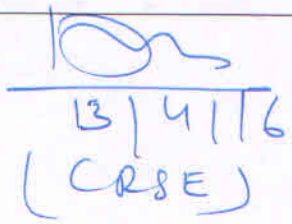 13/4/16
(CRSE)